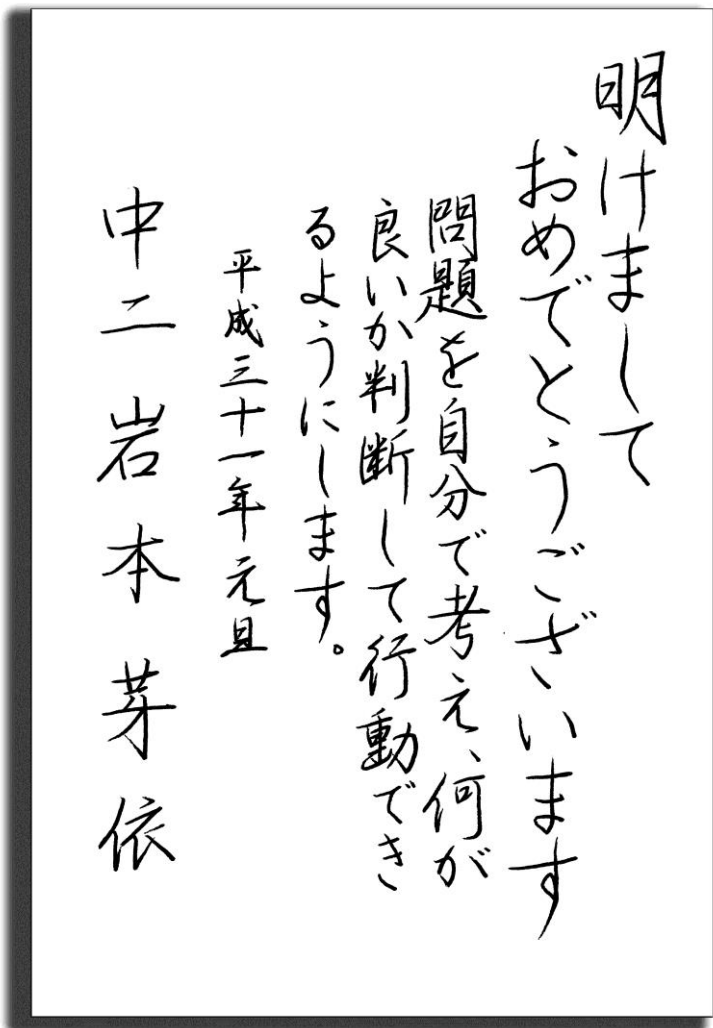 明けまして
おめでとうございます
問題を自分で考え、何が
良いか判断して行動でき
るようにします。
平成三十一年元旦
中二 岩本芽依